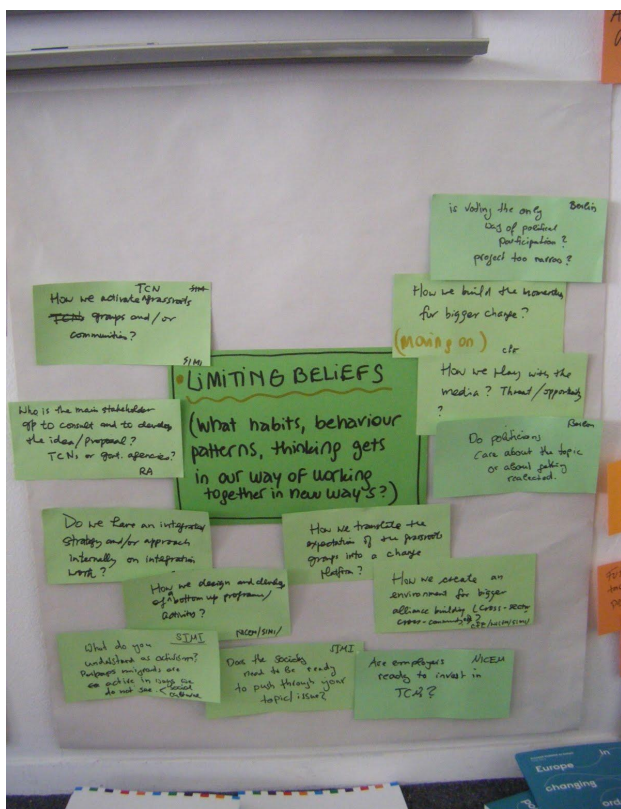 is voting the only Berlin
way of political
participation?
project too narrow?
TCN
How we activate grassroots
TCNs groups and/or
communities?
SIMI
How we build the momentum
for bigger change?
(moving on)
• LIMITING BELIEFS
(What habits, behaviour
patterns, thinking gets
in our way of working
together in new way's?)
How we play with the
media? Threat/opportunity
?
Who is the main stakeholder
gp to consult and to develop
the idea/proposal?
TCNs or govt. agencies?
RA
Berlin
Do politicians
care about the topic
or about getting
reelected.
Do we have an integrated
strategy and/or approach
internally on integration
work?
How we translate the
expectation of the grassroots
groups into a change
platform?
How we design and develop
a bottom up programe/
activity?
NICEM/SIMI/
How we create an
environment for bigger
alliance building (cross-sector
cross-community)?
CFE/NICEM/SIMI/
SIMI
What do you
understand as activism?
Perhaps migrants are
active in ways we
do not see.
SIMI
Does the society
need to be ready
to push through your
topic/issue?
Are employers NICEM
ready to invest in
TCNs?
Europe in
changing